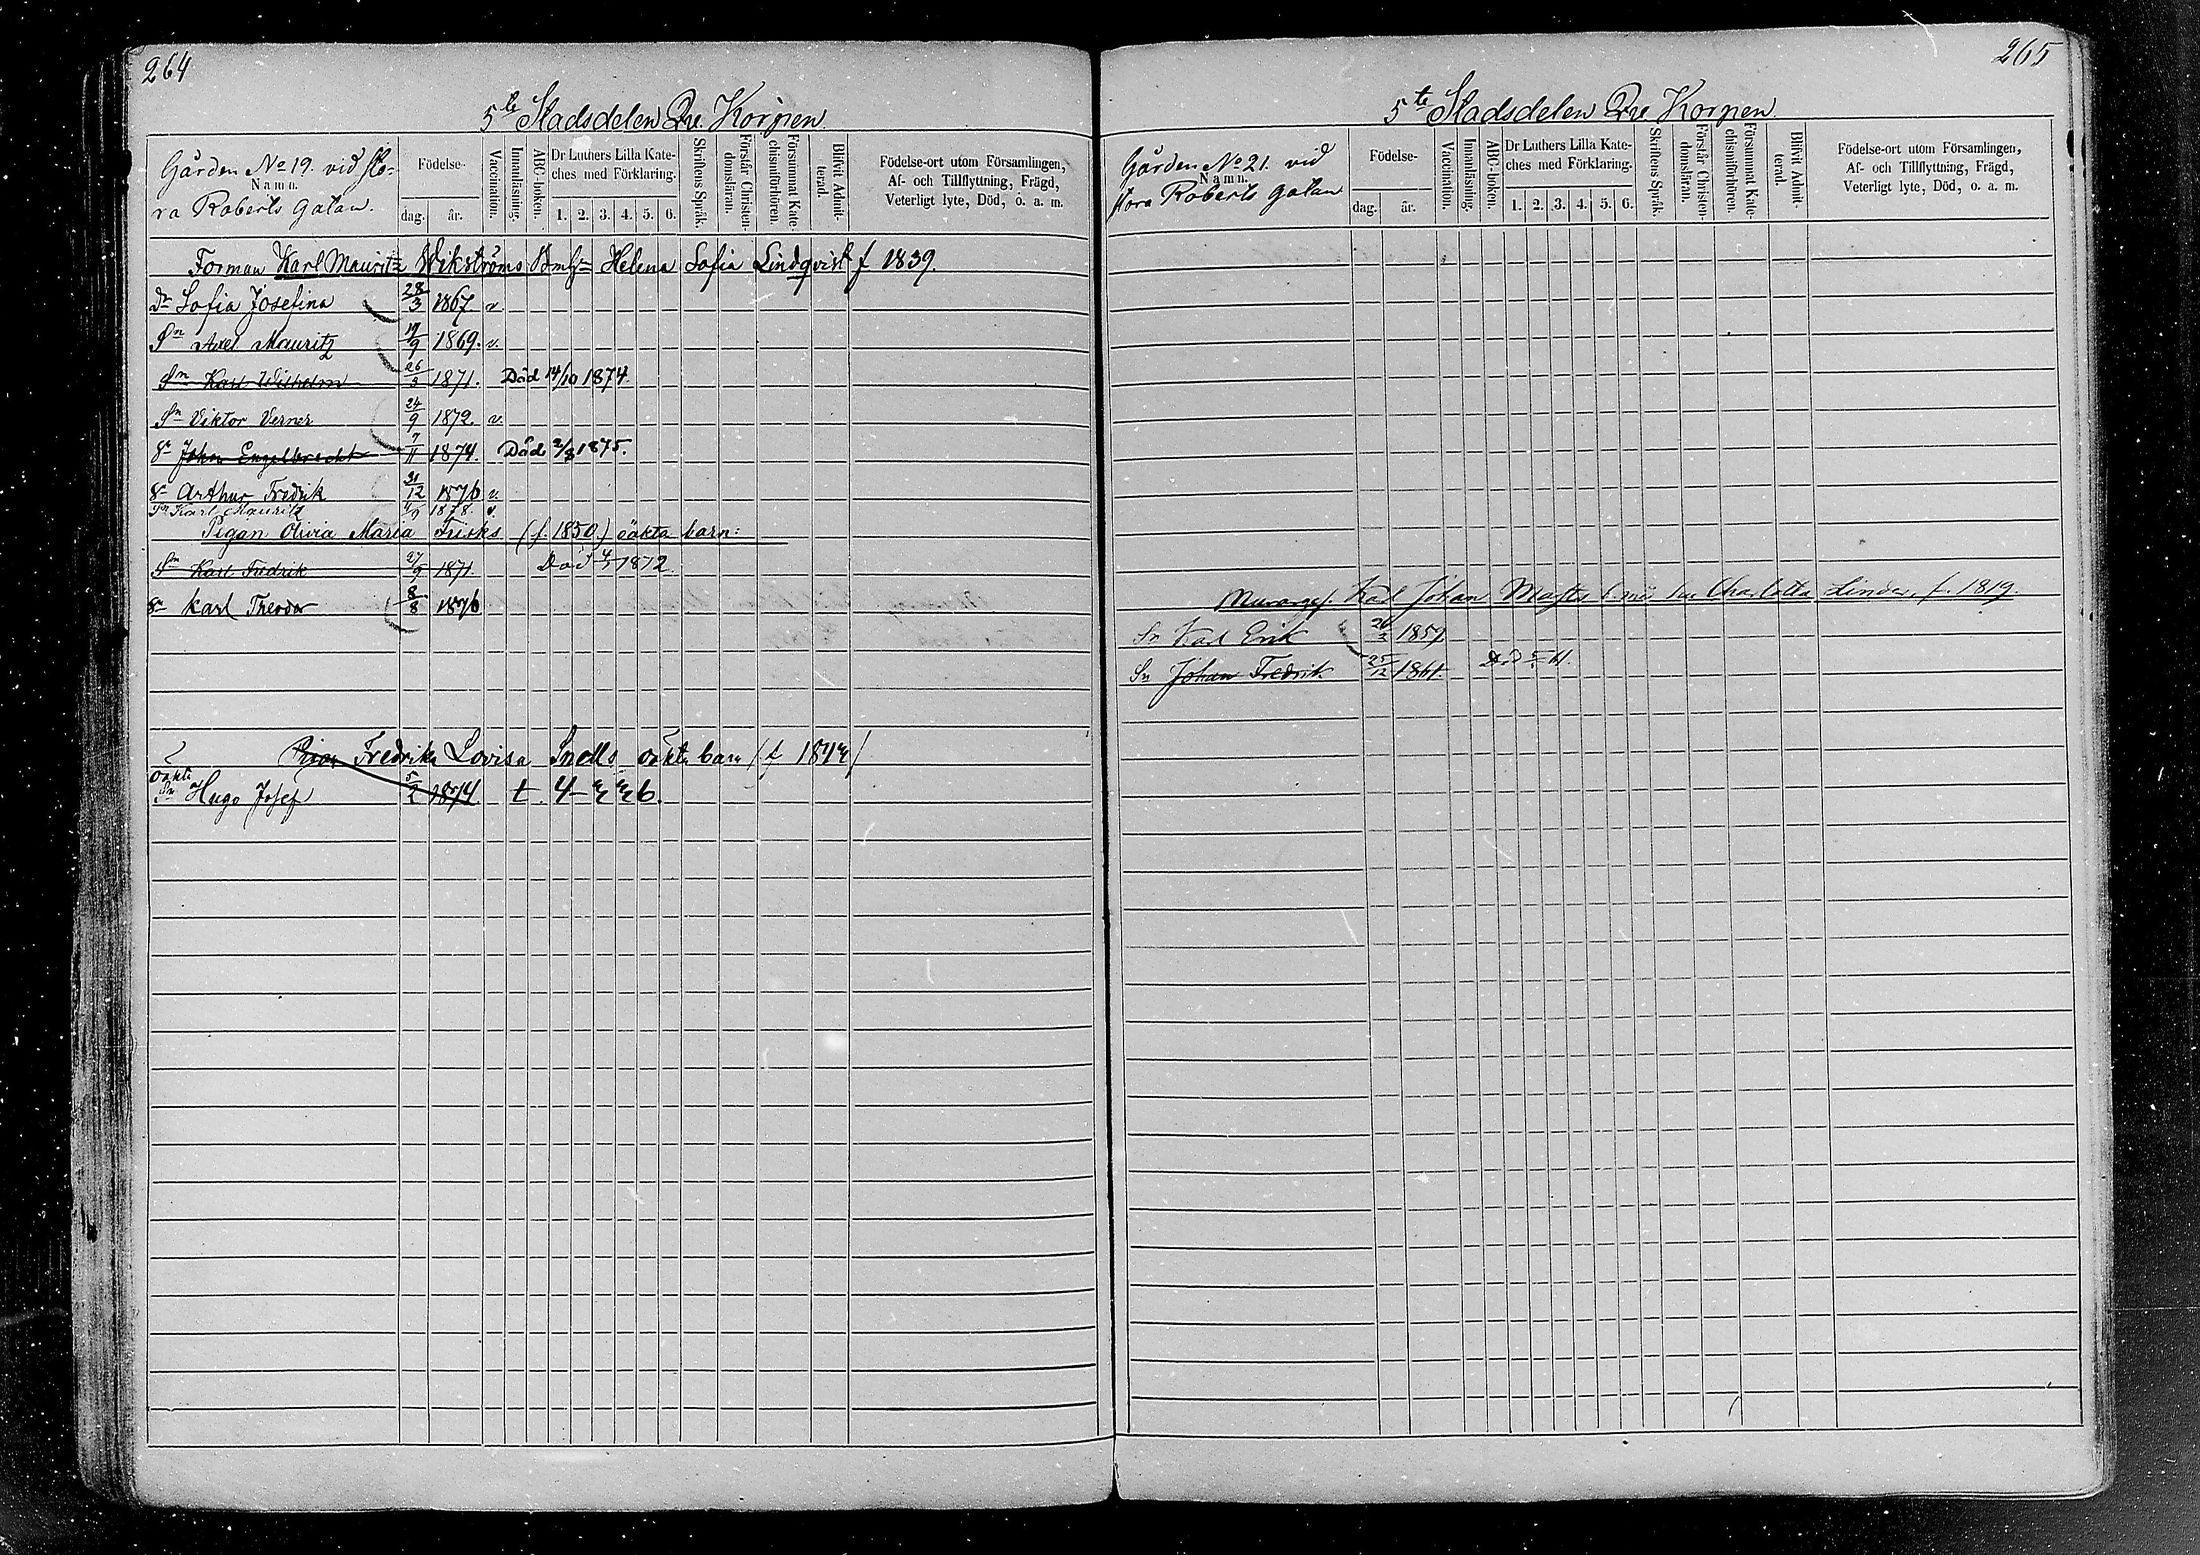 264
5te Stadsdelen Qu. Korpen
Gården No 19. vid sto-
ra Roberts gatan.
Namn.
Födelse-
dag.
år.
Vaccination.
Innanläsning.
ABC-boken.
Dr Luthers Lilla Kate-
ches med Förklaring.
1. 2. 3. 4. 5. 6.
Skriftens Språk.
Förstår Christen-
domsläran.
Försummat Kate-
chismiförhören.
Blifvit Admit-
terad.
Födelse-ort utom Församlingen,
Af- och Tillflyttning, Frägd,
Veterligt lyte, Död, o. a. m.
Forman Karl Mauritz Wikströms Helena Sofia Lindqvist f 1839.
Dr Sofia Josefina 28/3 1867. v.
Sn Axel Mauritz 17/9 1869. v.
Sn Karl Wilhelm 26/3 1871. Död 14/10 1874.
Sn Viktor Verner 24/9 1872. v.
Sn John Engelbrecht 7/11 1874. Död 2/3 1875.
Sn Arthur Fredrik 31/12 1876 v.
Sn Karl Mauritz 1878. v.
Pigan Olivia Maria Frisks (f. 1850.) oäkta barn:
Sn Karl Fredrik 27/9 1871. Död 1872
Sn Karl Theodor 8/8 1876
Pigan Fredrika Lovisa Snells oäkta barn
oäkta
Sn Hugo Josef 5/2 1874 t.
265
5te Stadsdelen Qu Korpen
Gården No 21. vid
stora Roberts gatan
Namn.
Födelse-
dag.
år.
Vaccination.
Innanläsning.
ABC-boken.
Dr Luthers Lilla Kate-
ches med Förklaring.
1. 2. 3. 4. 5. 6.
Skriftens Språk.
Förstår Christen-
domsläran.
Försummat Kate-
chismiförhören.
Blifvit Admit-
terad.
Födelse-ort utom Församlingen,
Af- och Tillflyttning, Frägd,
Veterligt lyte, Död, o. a. m.
Murarges. Karl Johan Charlotta Linder, f. 1819.
Sn Karl Erik 1859
Sn Johan Fredrik 25/12 1861. Död